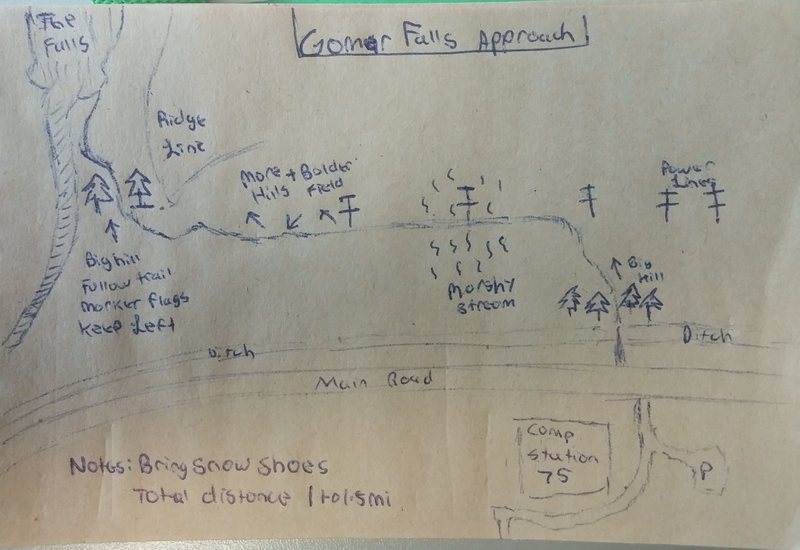 The
Falls
Gomar Falls Approach
Ridge
Line
More + Bolder
Hills Field
Power
Lines
Big hill
Follow trail
Marker flags
Keep Left
Big
Hill
Morshy
Stream
Ditch
Ditch
Main Road
Comp
Station
75
P
Notes: Bring Snow Shoes
Total distance 1 to 1.5 mi